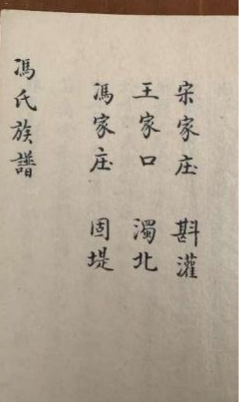 宋家庄 斟灌
王家口 濁北
馮家庄 固堤
馮氏族譜